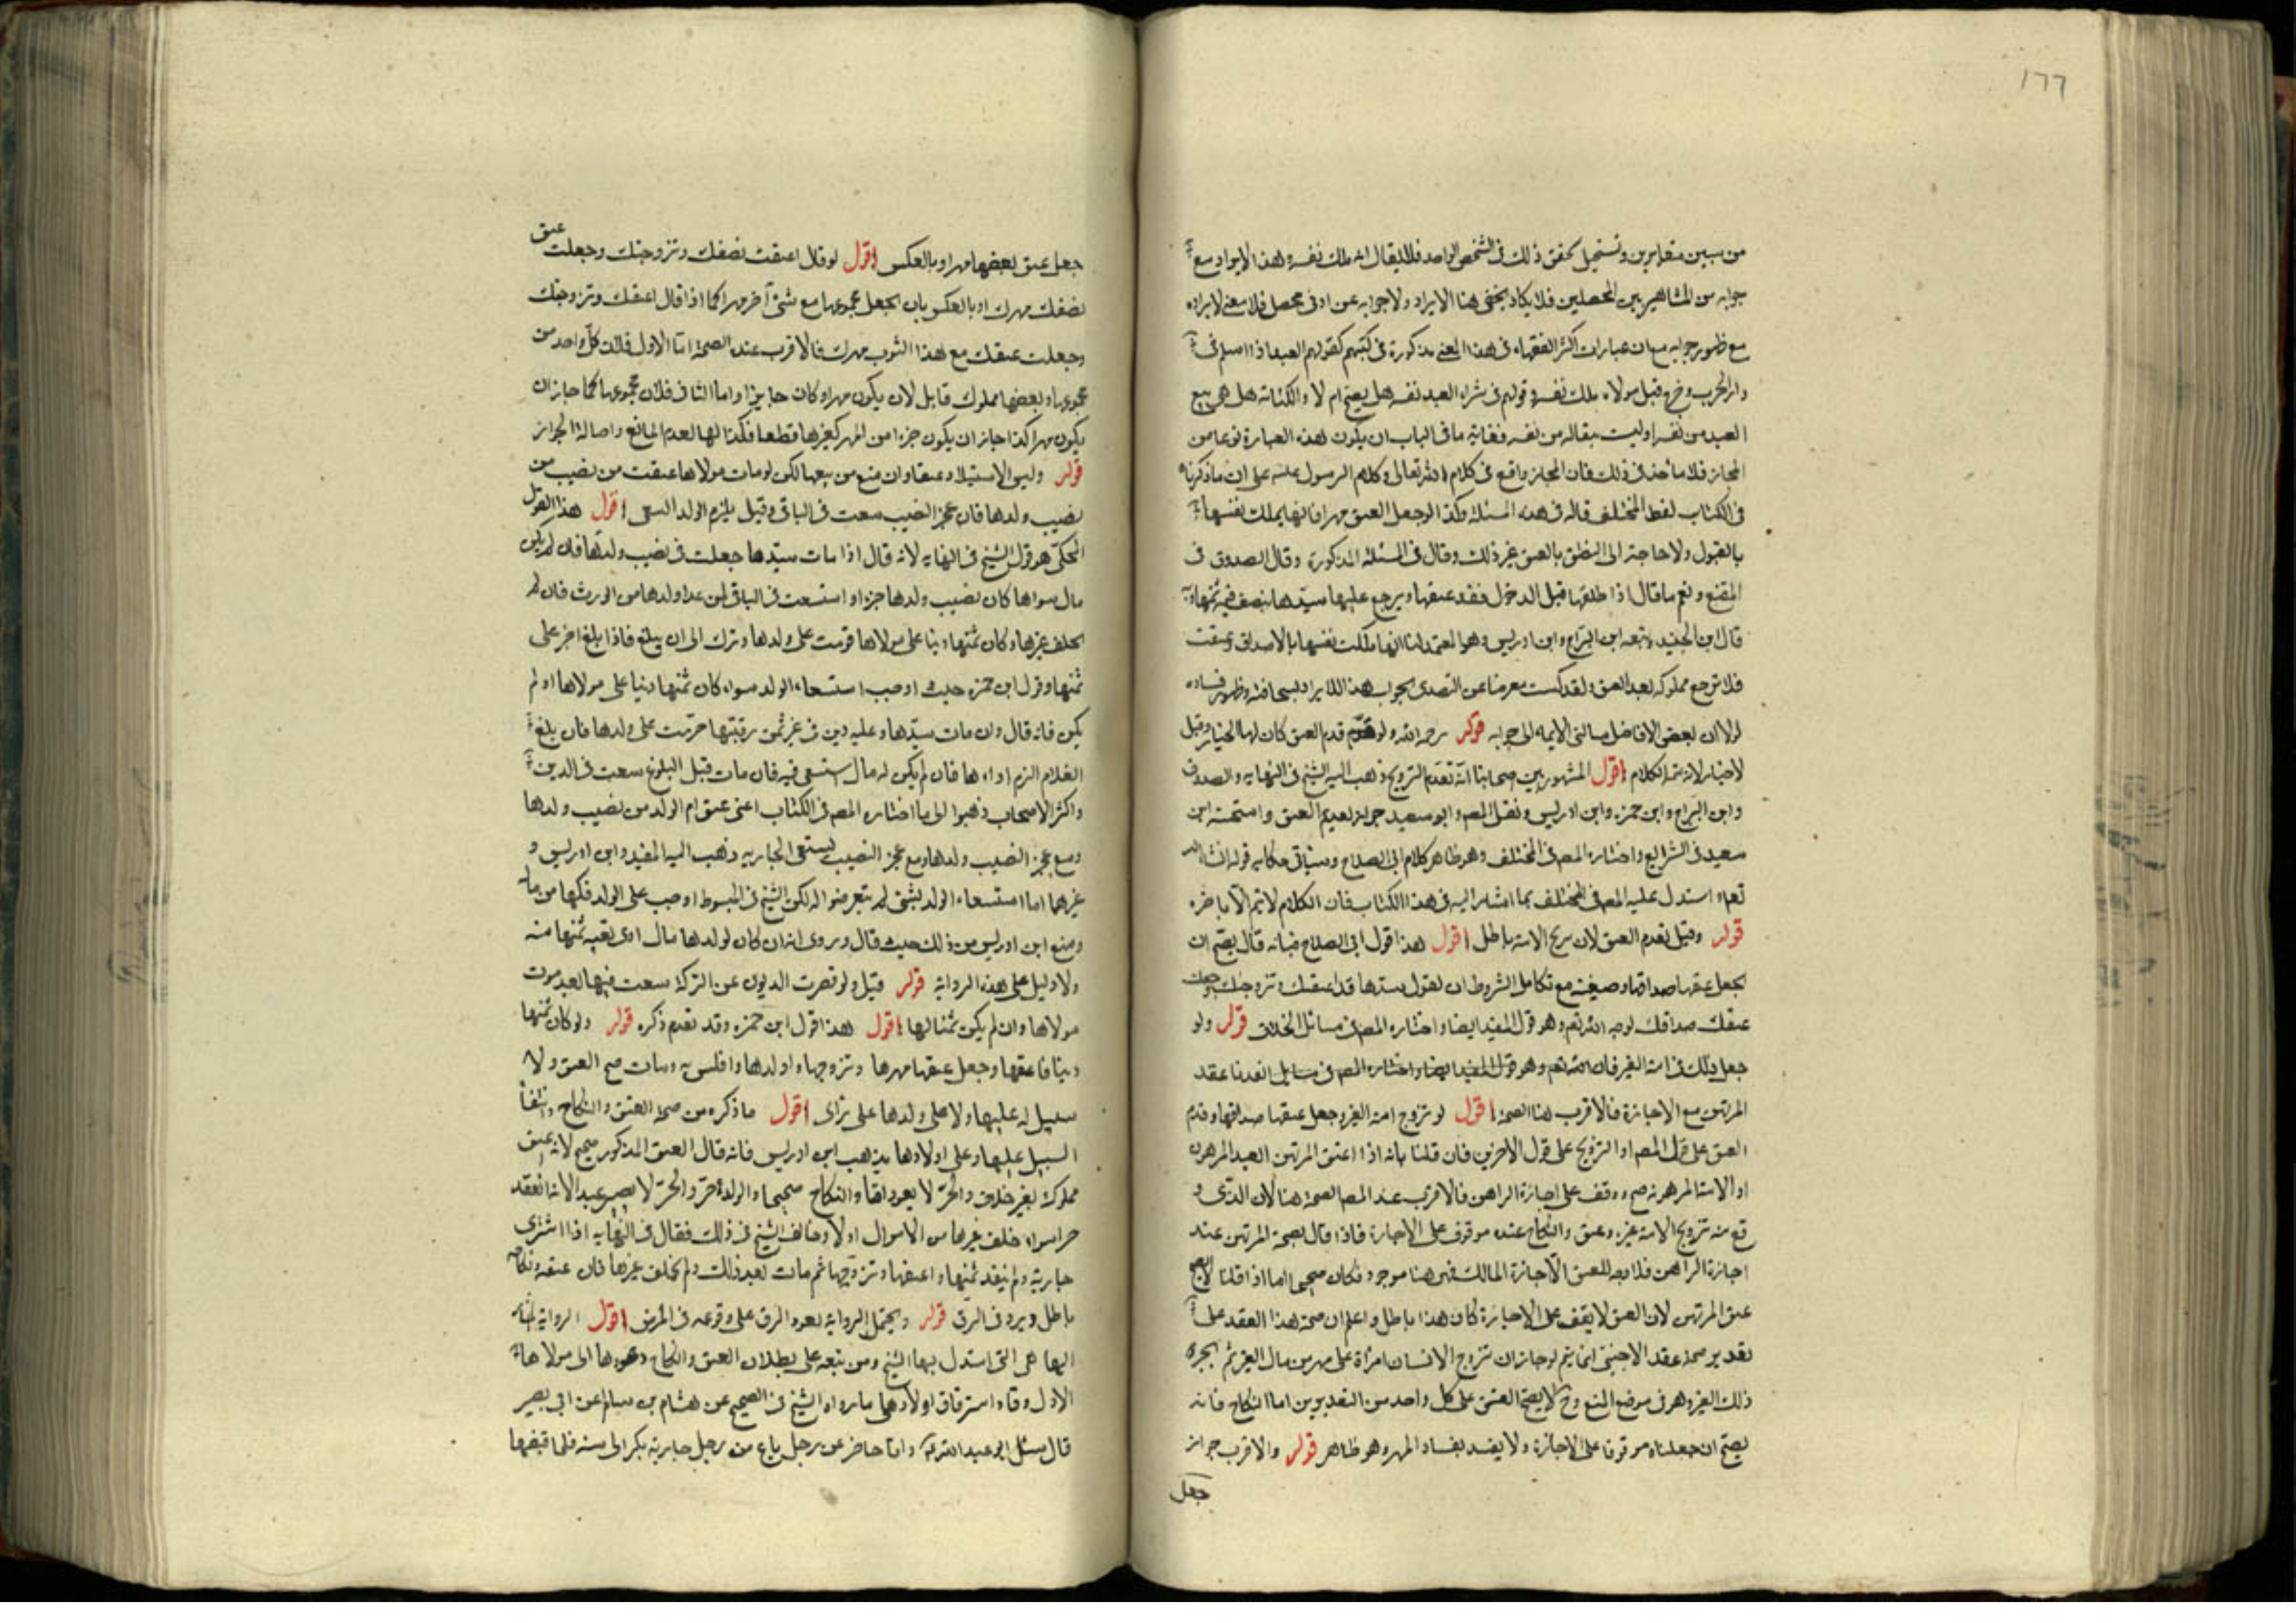 ١٦٦
من سببين متغايرين وتستحيل تحقق ذلك في الشخص الواحد فلا يقال انه ملك نفسه وهذا الايراد مع
جوابه من المشاهير بين المحصلين فلا يكاد يخفى هذا الايراد ولا جوابه عن ادنى محصل فلا معنى لايراده
مع ظهور جوابه مع ان عبارات اكثر الفقهاء في هذا المعنى مذكورة في كتبهم كقولهم العبد اذا اسلم في
دار الحرب وخرج قبل مولاه ملك نفسه وقولهم في شراء العبد نفسه هل يصح ام لا والكتابة هل هي بيع
العبد من نفسه او ليست بيعا له من نفسه فغاية ما في الباب ان يكون هذه العبارة نوعا من
المجاز فلا مأخذ في ذلك فان المجاز واقع في كلام الله تعالى وكلام الرسول على ان ما ذكرناه
في الكتاب لفظ المختلف قاله في هذه المسئلة وكذا لو جعل العتق مهرا فانها يملك نفسها
بالقبول ولا حاجة الى النطق بالعتق غير ذلك وقال في المسئلة المذكورة وقال الصدوق في
المقنع ونعم ما قال اذا طلقها قبل الدخول فقد عتقها ويرجع عليها سيدها بنصف قيمة ثمنها وبه
قال ابن الجنيد وتبعه ابن البراج وابن ادريس وهو المعتمد لنا انها ملكت نفسها بالاصداق وعتقت
فلا ترجع مملوكة بعد العتق ولقد كنت معرضا عن التصدي لجواب هذا الايراد لسخافته وظهور فساده
لولا ان بعض الافاضل سالني الايماء الى جوابه قوله رحمه الله ولو قدم العتق كان لها الخيار وقيل
لا خيار لانه تتمة الكلام اقول المشهور بين اصحابنا انه تقدم التزويج ذهب اليه الشيخ في النهاية والصدوق
وابن البراج وابن حمزه وابن ادريس ونقل المصم وابو سعيد جواز تقديم العتق واستحسنه ابن
سعيد في الشرايع واختاره المصم في المختلف وهو ظاهر كلام ابي الصلاح وسياتي حكاية قوله انشا الله
تعالى استدل عليه المصم في المختلف بما اشار اليه في هذا الكتاب فان الكلام لا يتم الا باخره
قوله وقيل تقدم العتق لان بضع الامة باطل اقول هذا قول ابي الصلاح فانه قال يصح ان
يجعل عتقها صداقها وصيغته مع تكامل الشروط ان يقول سيدها قد اعتقتك وتزوجتك وجعلت
عتقك صداقك لوجه الله تعم وهو قول المفيد ايضا واختاره المصم في مسائل الخلاف قوله ولو
جعل ذلك في امة الغير فان
المرتهن مع الاجازة فالاقرب هنا الصحة اقول لو تزوج امة الغير وجعل عتقها صداقها وقدم
العتق على قول المصم او التزويج على قول الاخرين فان قلنا بانه اذا اعتق المرتهن العبد المرهون
او الامة المرهونة صح ووقف على اجازة الراهن فالاقرب عند المصم الصحة هنا لان الذي
وقع منه تزويج الامة غيره وعتق والنكاح عنده موقوف على الاجازة فاذا قال بصحة المرتهن عند
اجازة الراهن فلا وجه للعتق الا اجازة المالك فهي هنا موجود فكان صحيحا اما اذا قلنا لا يصح
عتق المرتهن لان العتق لا يقف على الاجازة كان هذا باطلا واعلم ان صحة هذا العقد على
تقدير صحة عقد الاجنبي انما يتم لو جاز ان تزوج الانسان امرأة على مهر من مال الغير ثم يجيزه
ذلك الغير وهو في موضع المنع وح لا يصح العتق على كل واحد من التقديرين اما النكاح فانه
يصح ان جعلناه موقوفا على الاجازة ولا يفسد بفساد المهر وهو ظاهر قوله والاقرب جواز
جعل
جعل عتق بعضها مهرا وبالعكس اقول لو قال اعتقت نصفك وتزوجتك وجعلت عتق
نصفك مهرك او بالعكس بان يجعل مجموعها مع شئ آخر مهرا كما اذا قال اعتقك وتزوجتك
وجعلت عتقك مع هذا الثوب مهرك فالاقرب عنده الصحة اما الاول فلان كل واحد من
مجموعها وبعضها مملوك قابل لان يكون مهرا وكان جايزا واما الثاني فلان مجموعها كما جاز ان
يكون مهرا كذا جاز ان يكون جزءا من المهر كغيرها قطعا فكذا لها لعدم المانع واصالة الجواز
قوله وليس الاستيلاد عتقا وان منع من بيعها لكن لو مات مولاها عتقت من نصيب من
نصيب ولدها فان عجز النصيب سعت في الباقي وقيل يلزم الولد السعي اقول هذا القول
المحكى هو قول الشيخ في النهاية لانه قال اذا مات سيدها جعلت في نصيب ولدها فان لم يكن
مال سواها كان نصيب ولدها حرا واستسعت في الباقي لمن عدا ولدها من الورث فان لم
يخلف غيرها وكان ثمنها دينا على مولاها قومت على ولدها وترك الى ان يبلغ فاذا بلغ اجبر على
ثمنها وقول ابن حمزه حيث اوجب استسعاء الولد سواء كان ثمنها دينا على مولاها او لم
يكن فانه قال وان مات سيدها وعليه دين في غير ثمن رقبتها حرمت على ولدها فان بلغ
الغلام الزم اداءها فان لم يكن له مال استسعى فيه فان مات قبل البلوغ سعت في الدين
واكثر الاصحاب ذهبوا الى ما اختاره المصم في الكتاب اعني عتق ام الولد من نصيب ولدها
ومع عجز النصيب ولدها ومع عجز النصيب يستسعى الجارية وذهب اليه المفيد وابن ادريس و
غيرهما اما استسعاء الولد بشئ لم يتعرضوا له لكن الشيخ في المبسوط اوجب على الولد فكها من ماله
ومنع ابن ادريس من ذلك حيث قال وروى انه ان كان لولدها مال ادى بقية ثمنها منه
ولا دليل على هذه الرواية قوله قيل ولو قصرت الديون عن التركة سعت فيها بعد موت
مولاها وان لم يكن ثمنا لها اقول هذا قول ابن حمزه وقد تقدم ذكره قوله ولو كان ثمنها
دينا فاعتقها وجعل عتقها مهرها وتزوجها واولدها وافلس به ومات صح العتق ولا
سبيل له عليها ولا على ولدها على رأى اقول ما ذكره من صحة العتق والنكاح وانتفاء
السبيل عليها وعلى اولادها مذهب ابن ادريس فانه قال العتق المذكور صحيح لانه عتق
مملوكه بغير خلاف والحر لا يعود رقا والنكاح صحيحا والولد حر والحر لا يصير عبدا لانه انعقد
حرا سواء خلف غيرها من الاموال او لا وخالف الشيخ في ذلك فقال في النهاية اذا اشترى
جارية ولم ينقد ثمنها واعتقها وتزوجها ثم مات بعد ذلك ولم يخلف غيرها فان عتقه ونكاحه
باطل ويرد في الرق قوله ويحتمل الرواية بعود الرق على وقوعه في المرض اقول الرواية المشار
اليها هي التي استدل بها الشيخ ومن تبعه على بطلان العتق والنكاح وعودها الى مولاها
الاول وقاه استرقاق اولادهما مارواه الشيخ في الصحيح عن هشام بن سالم عن ابي بصير
قال سئل ابو عبد الله وانا حاضر عن رجل باع من رجل جارية بكرا الى سنة فلما قبضها